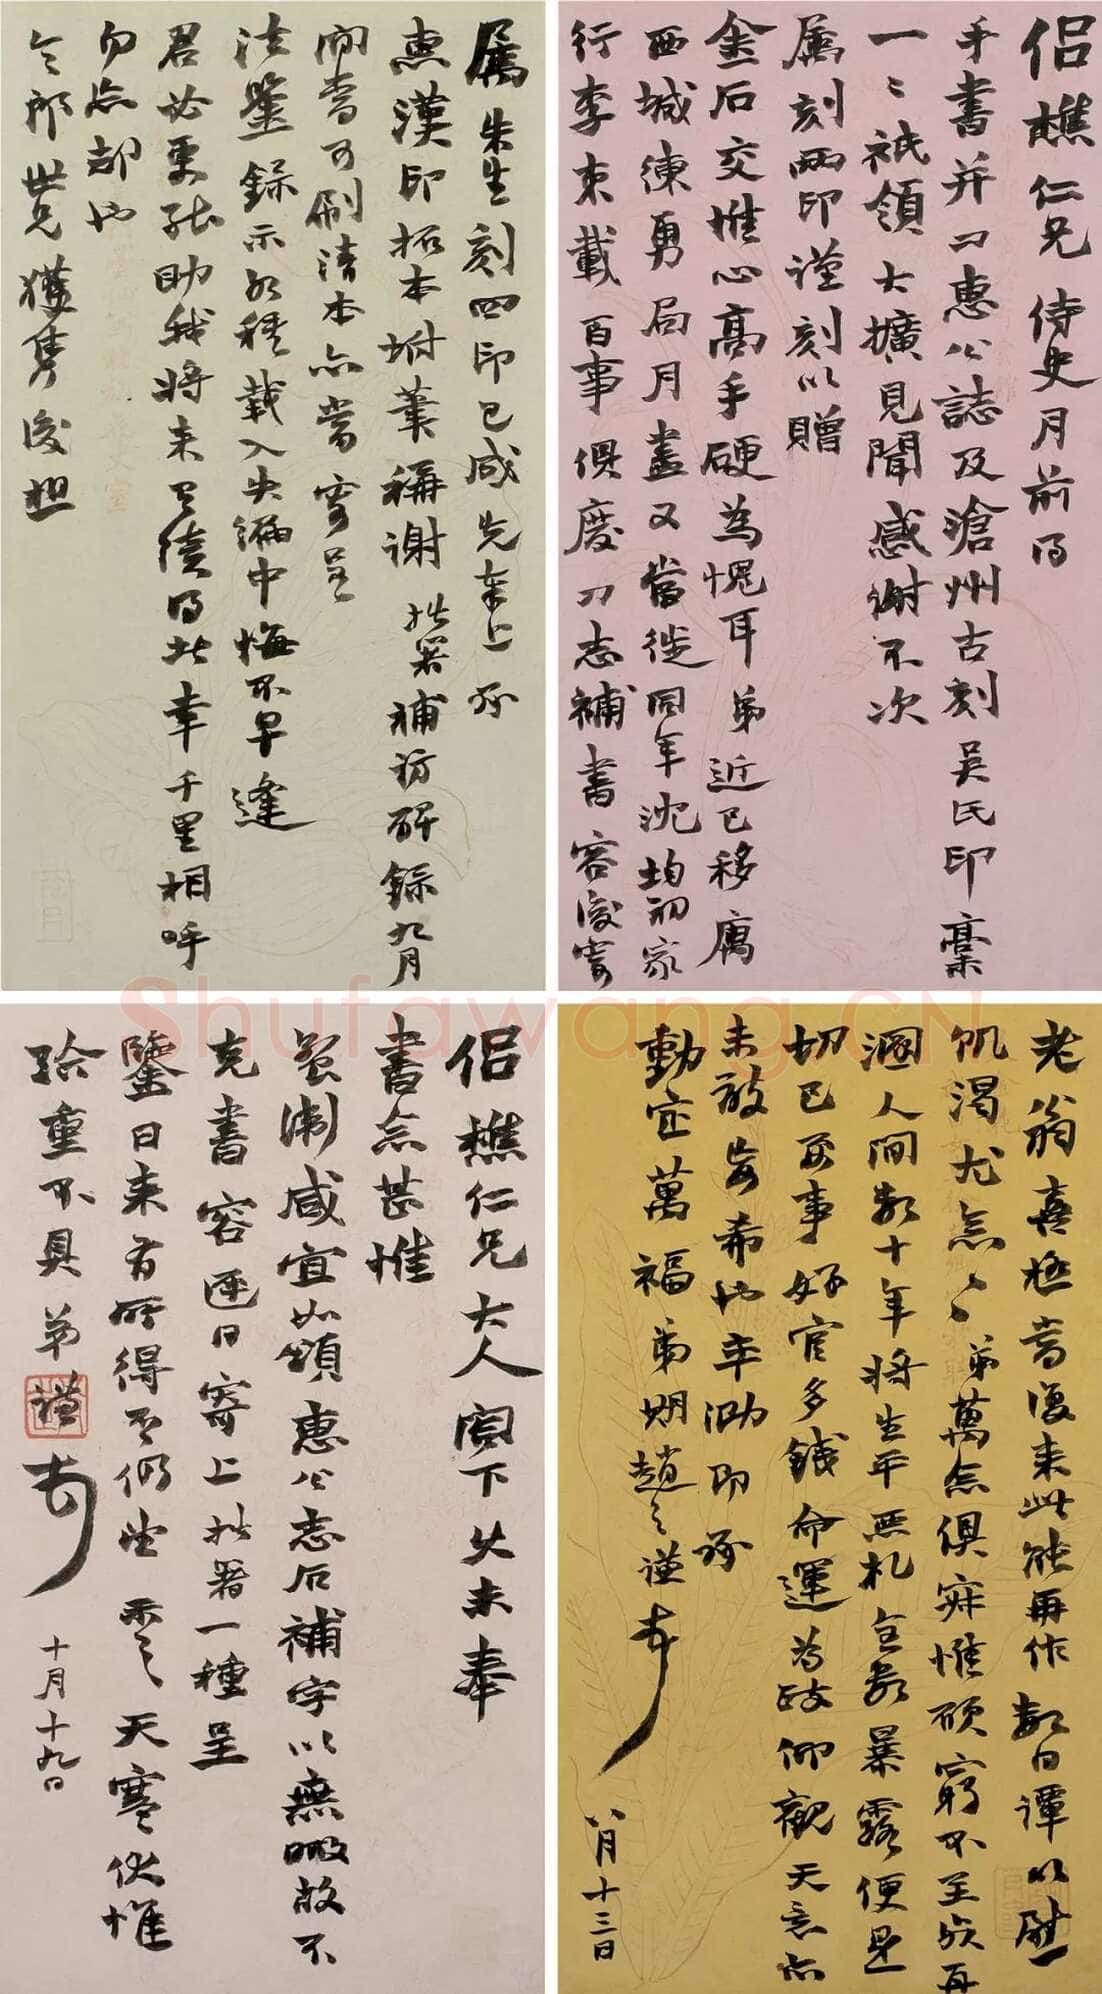 侣樵仁兄侍史月前得
手書并刁惠公誌及滄州古刻吳氏印稾
一〻祇領大擴見聞感謝不次
属刻兩印謹刻以贈
金石交惟心高手硬為愧耳弟近已移寓
西城練勇局月盡又當徙同年沈均初家
行李束載百事俱廢刁志補書容後寄
属朱生刻四印已成先奉上承
惠漢印拓本坿筆稱謝拙著補訪碑錄九月
間當可刷清本亦當寄呈
法鑒錄示各種載入失編中悔不早逢
君必更能助我將來又續得此幸千里相呼
勿忘却也
令郎世兄獲隽後担
老翁喜極當復來此能再作數日譚以慰
飢渴尤念〻弟萬念俱寂惟願窮不至於再
溷人間數十年將生平無札暴露便是
切己要事好官多錢命運為政仰觀天意亦
未敢妄希也率泐即承
動定萬福弟期趙之謙頓首
八月十三日
侣樵仁兄大人閣下久未奉
書念甚惟
箸潮咸宜如頌惠公志石補字以無暇故不
克書容遲日寄上拙著一種呈
鑒日来有所得否仍望示之天寒伏惟
珍重不具弟謙頓首
十月十九日
Shufawang.CN